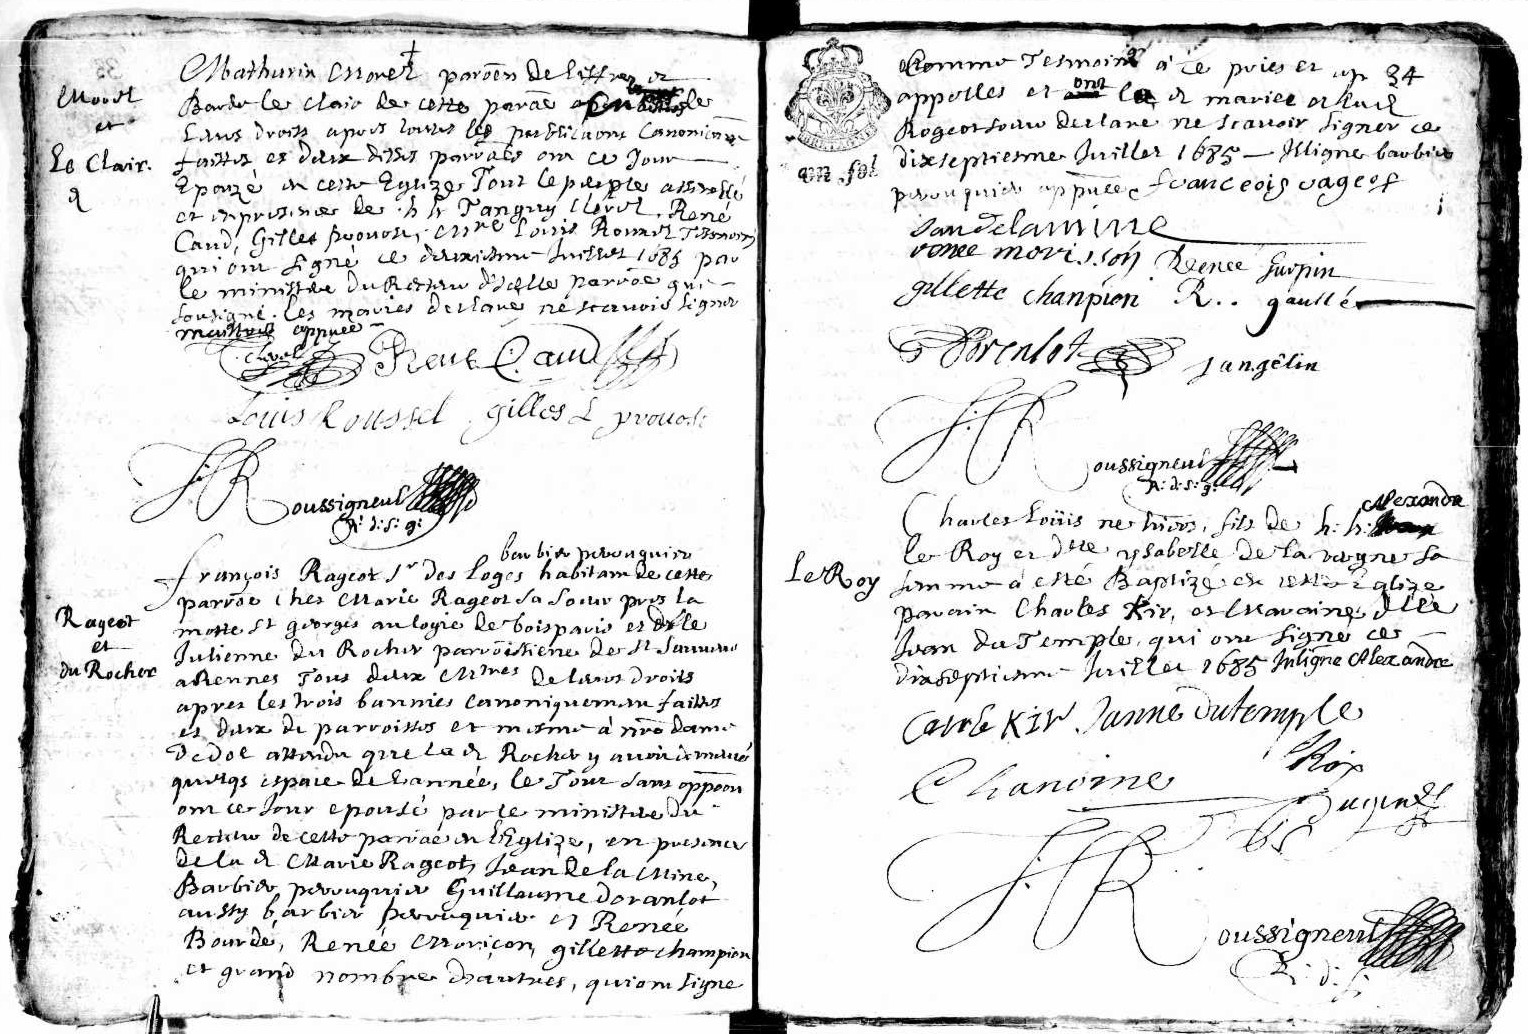 Mathurin Morel paroen de
Morel
et
Le Clair.
Barbe le Clair de cette paroe
leurs droits apres toutes les publicaons canoniquemt
faittes es deux dittes parroes ont ce jour
Epouzé en cette Eglize Tout le peuple assemblé
et en presence de h h Tanguy Morel, René
Caud, Gilles provost, Mtre Louis Roussel Tesmoins
qui ont signé ce deuxiesme Juillet 1685 par
le ministere du Recteur d'icelle parroe qui
sousigne. les mariés declare ne scavoir signer
appuee
René Caud
Louis Roussel gilles L provost
F: R oussigneul
R: d: S: g:
Rageot
et
du Rocher
barbier perouquier
françois Rageot Sr des loges habitant de cette
parroe chez Marie Rageot sa soeur pres la
motte St georges au logis de boispavis et dlle
Julienne du Rocher parroissiene de St Sauveur
a Rennes Tous deux Mtres de leurs droits
apres les trois bannies canoniquement faittes
es deux parroisses et mesme à nre dame
de dol attendu que la d Rocher y avoir demeuré
quelqs espace de l'année, le Tout sans oppoon
ont ce jour epousé par le ministere du
Recteur de cette parroe en l'Eglize, en presence
de la d Marie Rageot, Jean de la Mine,
Barbier perouquier Guillaume Doranlot
aussy barbier perouquier et Renée
Bourdé, Renée Moriçon, gillette champion
et grand nombre d'autres, qui ont signe
34
Comme Tesmoins à ce pries et
appelles et ont la d mariee et la d
Rageot soeur declare ne scavoir signer ce
dixseptiesme Juillet 1685 – Illigne barbier
perouquier appuee francois rageot
un sol
Jan delamine
renee morisson Renee Gurpin
gillette chanpion R.. gaullé
G Dorenlot Jangêlin
F: R oussigneul
R: d: S: g:
Alexandre
Charles Loüis ne hiers, fils de h: h:
Le Roy
le Roy et dlle ysabelle de la vergne sa
femme à esté Baptizé en cette Eglize
parain Charles Kir, et Maraine, dlle
Jean du Temple, qui ont signe ce
dixseptiesme Juillet 1685 Inligne Alexandre
Carle Kir Janne dutemple
Chanoine
F: R oussigneul
R: d: S: